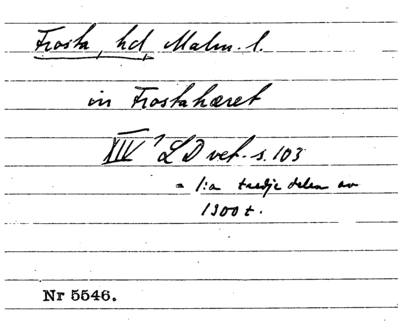 Frosta, hd, Malm. l.
in Frostahæret
XIV 1 LD vet. s. 103
= 1:a tredje delen av
1300 t.
Nr 5546.